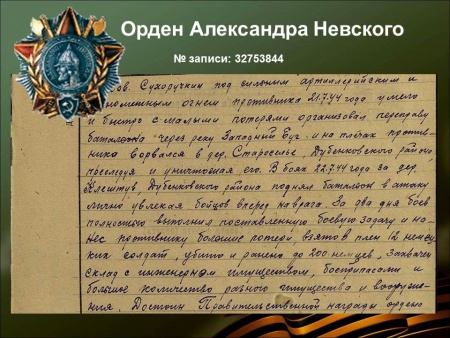 Орден Александра Невского
№ записи: 32753844
ов. Сухоручкин под сильным артиллерийским и
пулеметным огнем противника 21.7.44 года умело
и быстро с малыми потерями организовал переправу
батальона через реку Западный Буг и на плечах против-
ника ворвался в дер. Староселье, Дубенковского района,
преследуя и уничтожая его. В боях 22.7.44 года за дер.
Клештув, Дубенковского района поднял батальон в атаку
лично увлекая бойцов вперед на врага. За два дня боев
полностью выполнил поставленную боевую задачу и на-
нес противнику большие потери взято в плен 12 немец-
ких солдат, убито и ранено до 200 немцев, захвачен
склад с инженерным имуществом, боеприпасами и
большое количество разного имущества и вооруже-
ния. Достоин Правительственной награды ордена